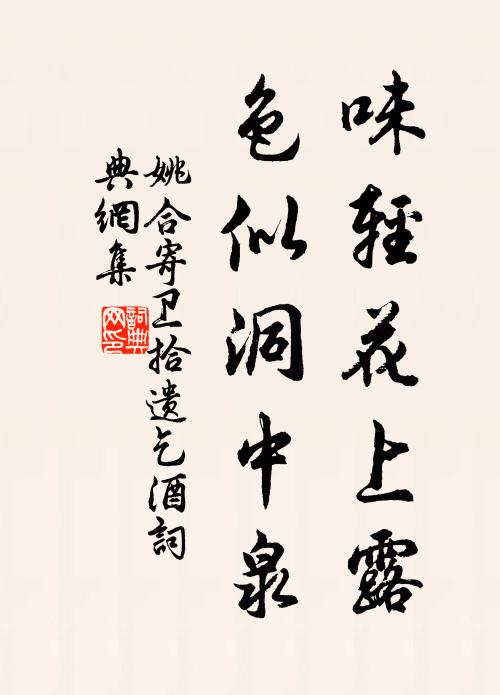 味輕花上露
色似洞中泉
姚合寄卫拾遗乞酒詞
典網集
詞典
网印